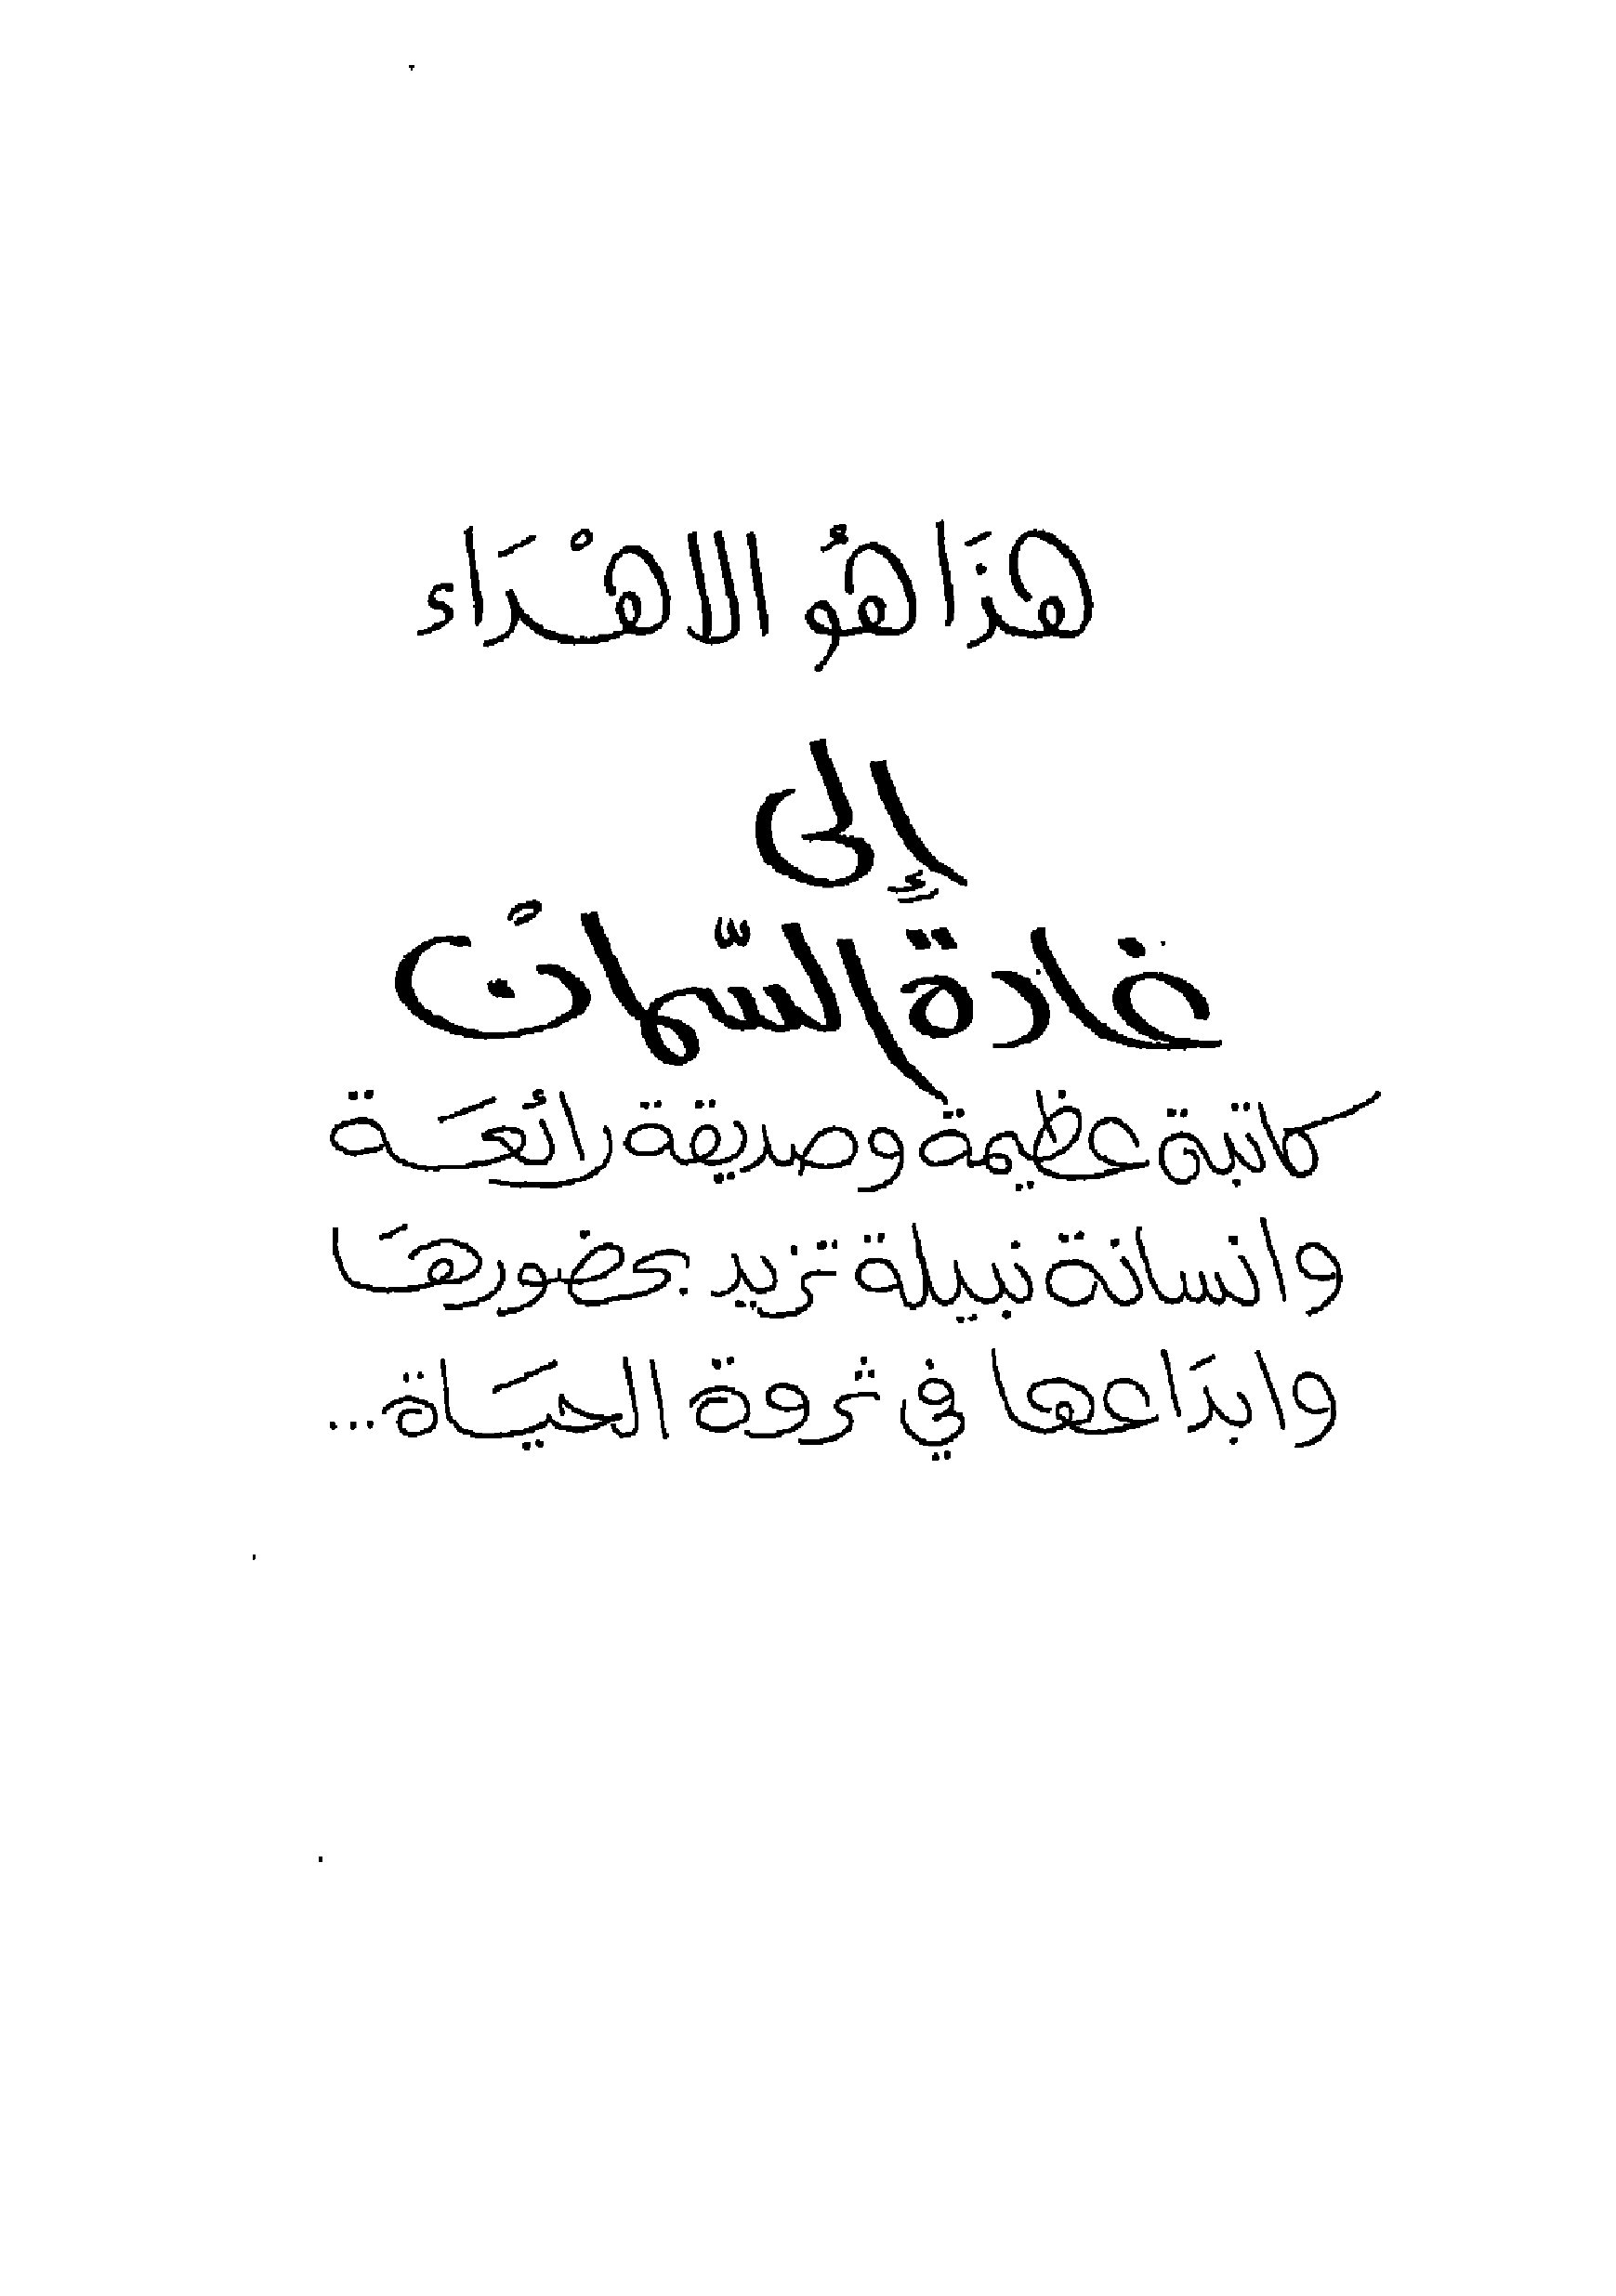 هذَا هُو الاهْدَاء
إلى
غادة السّمانْ
كاتبة عظيمة وصديقة رائعَة
وانسانة نبيلة تزيد بحضورهَا
وابدَاعها في ثروة الحيَاة...